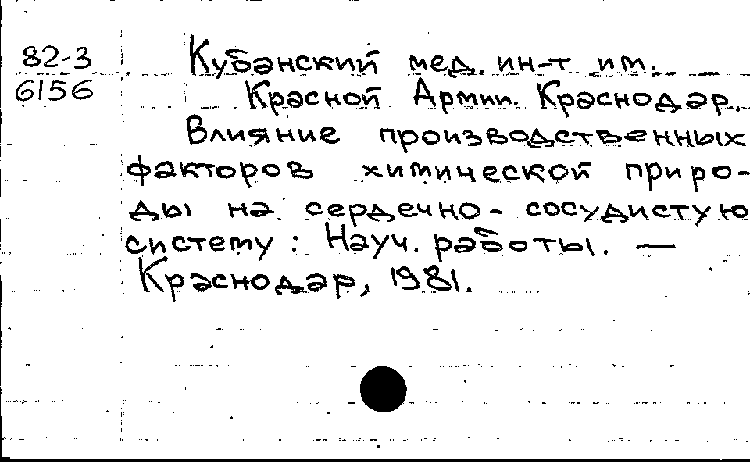 82-3
6156
Кубанский мед. ин-т им.
Красной Армии. Краснодар.
Влияние производственных
факторов химической приро-
ды на сердечно-сосудистую
систему: Науч. работы. —
Краснодар, 1981.